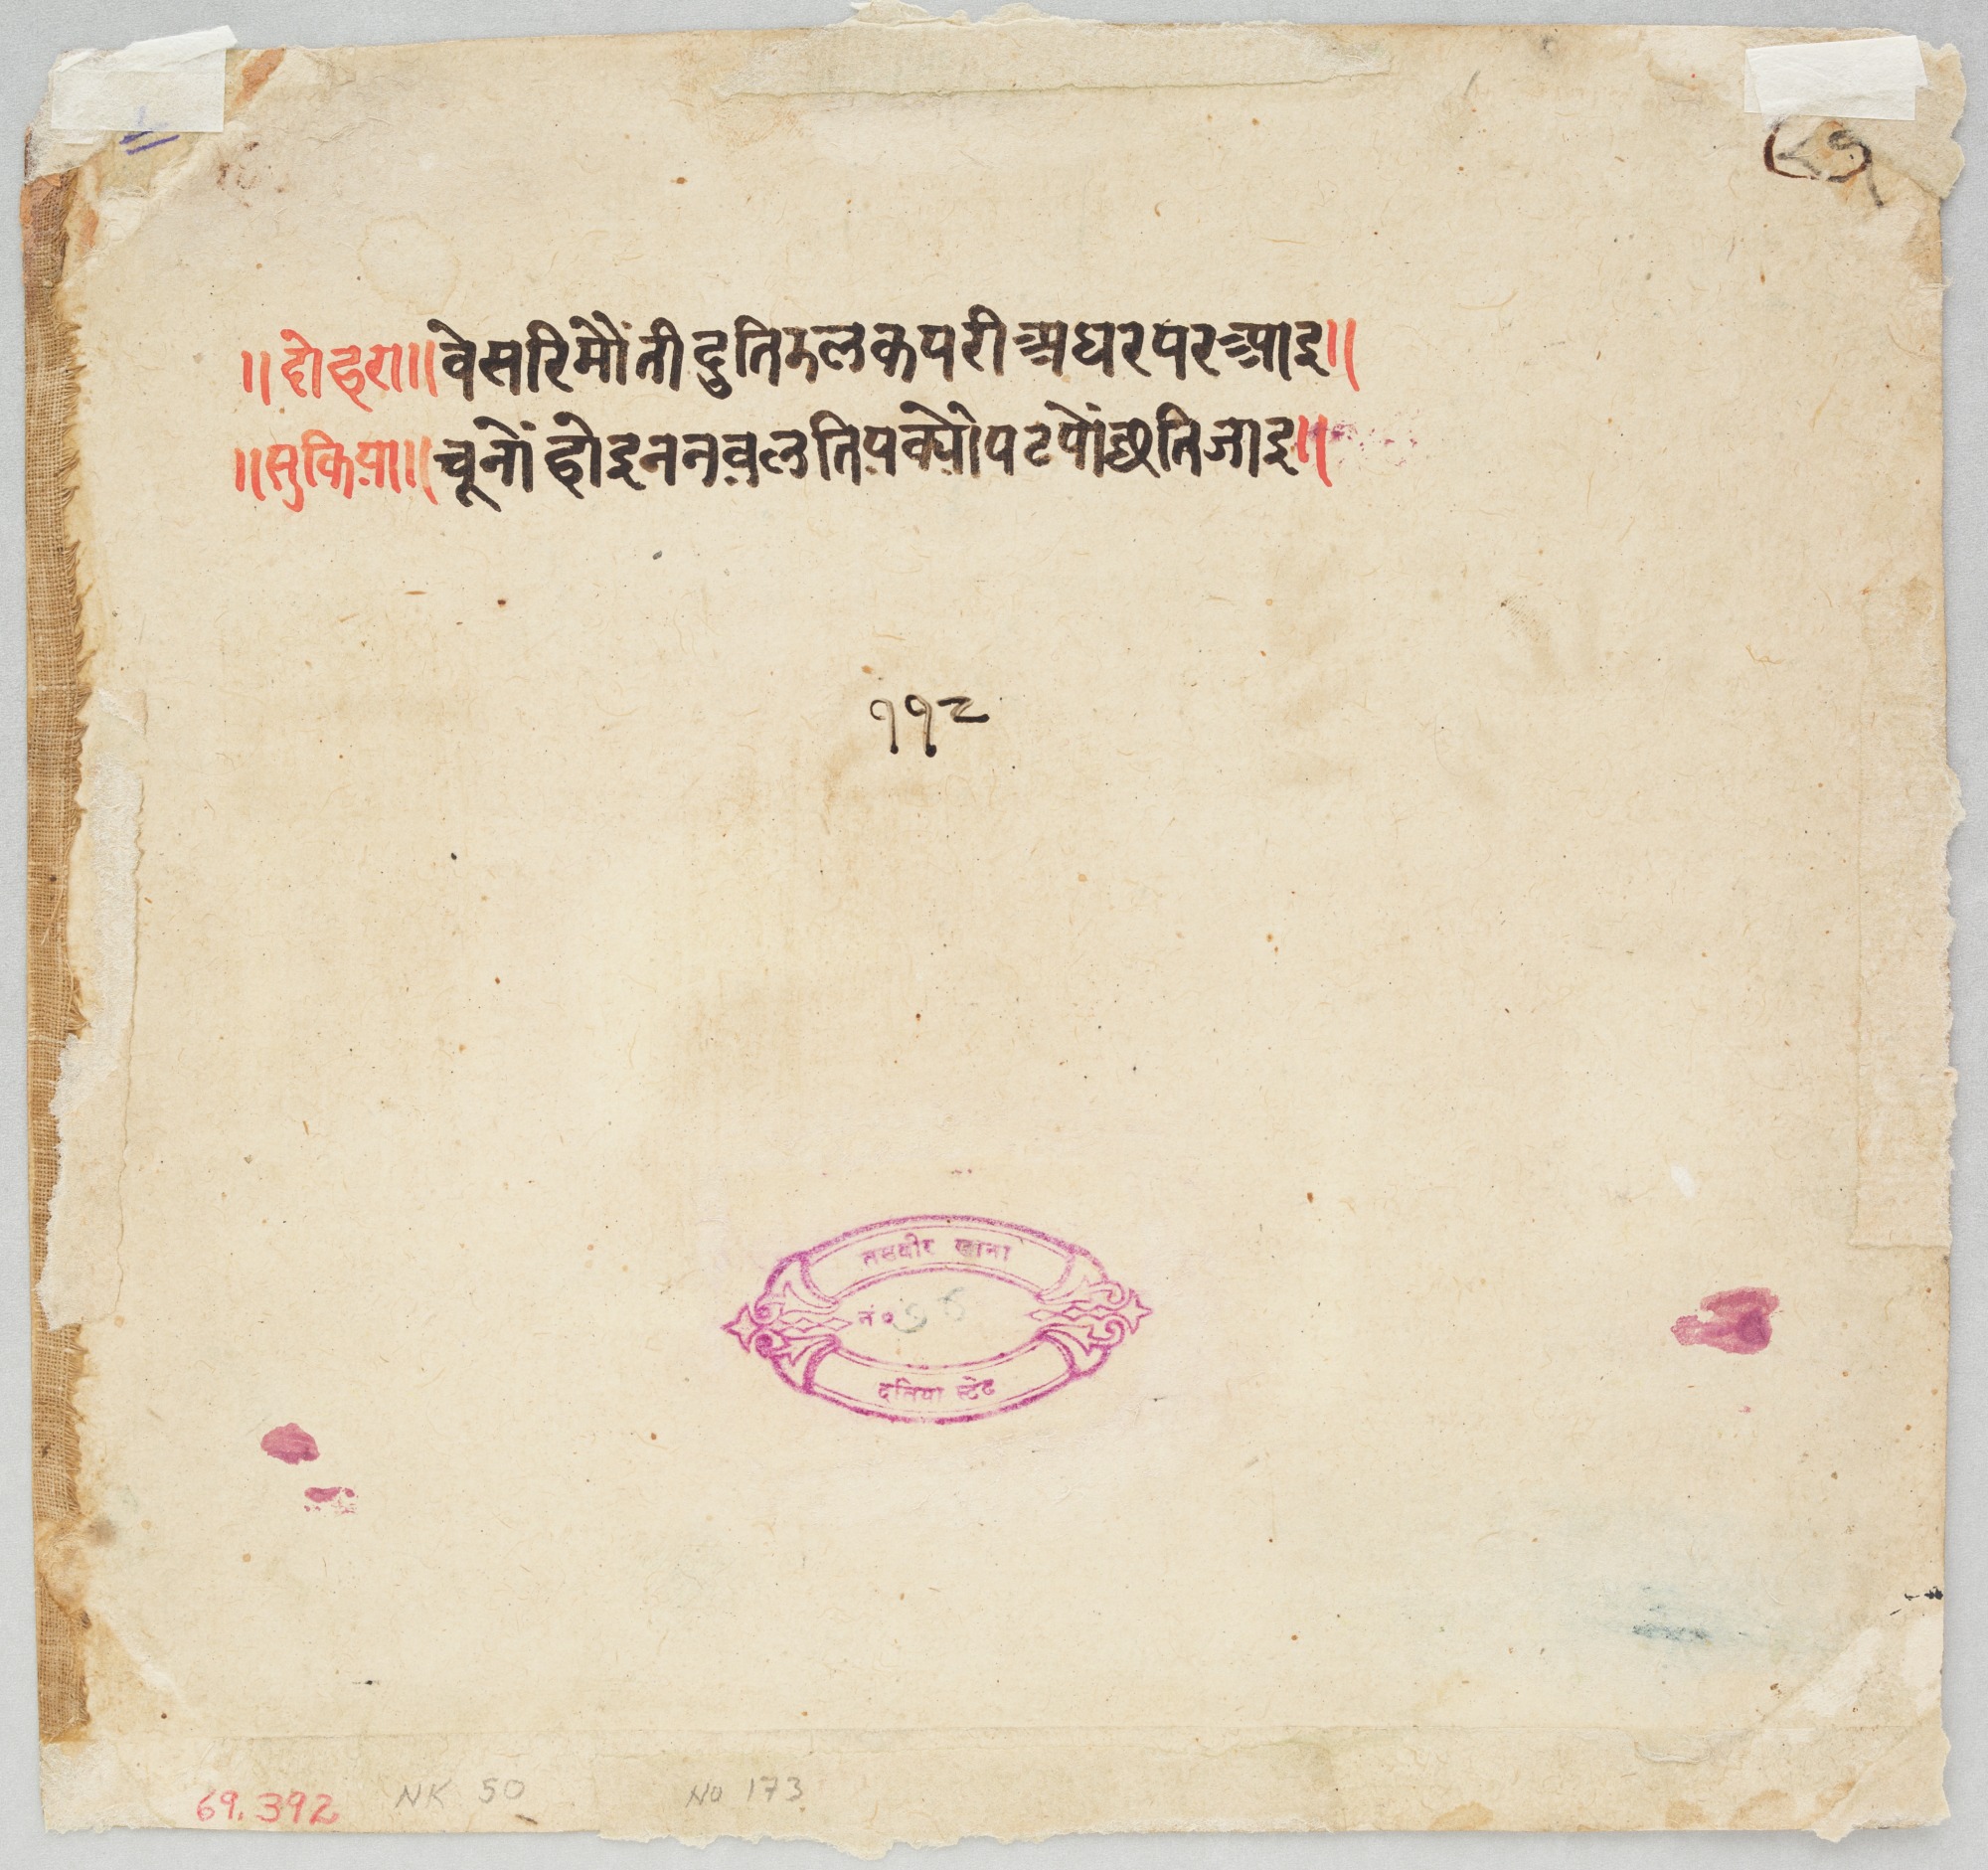 ॥दोहरा॥वेसरिमौंतीदुतिझलकपरीअधरपरआइ॥
॥सुकिया॥चूनोंहोइनचतुरतियक्योंपटपोंछतिजाइ॥
११८
तसवीर खाना
नं०
दतिया स्टेट
69.392 NK 50 No 173